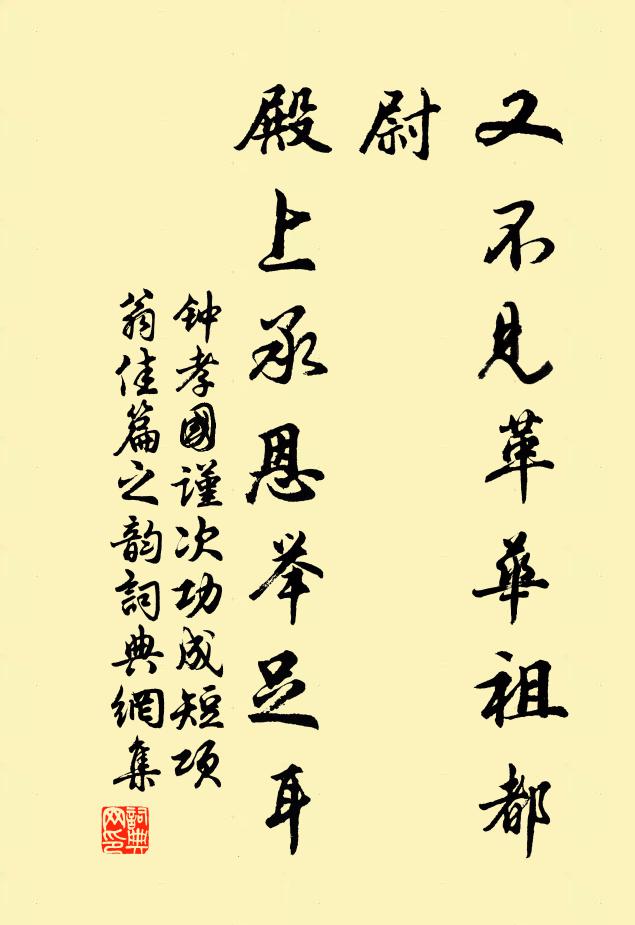 又不見革華祖都
尉
殿上承恩举足耳
钟孝國謹次功成短項
翁佳篇之韵詞典網集
詞典
网印